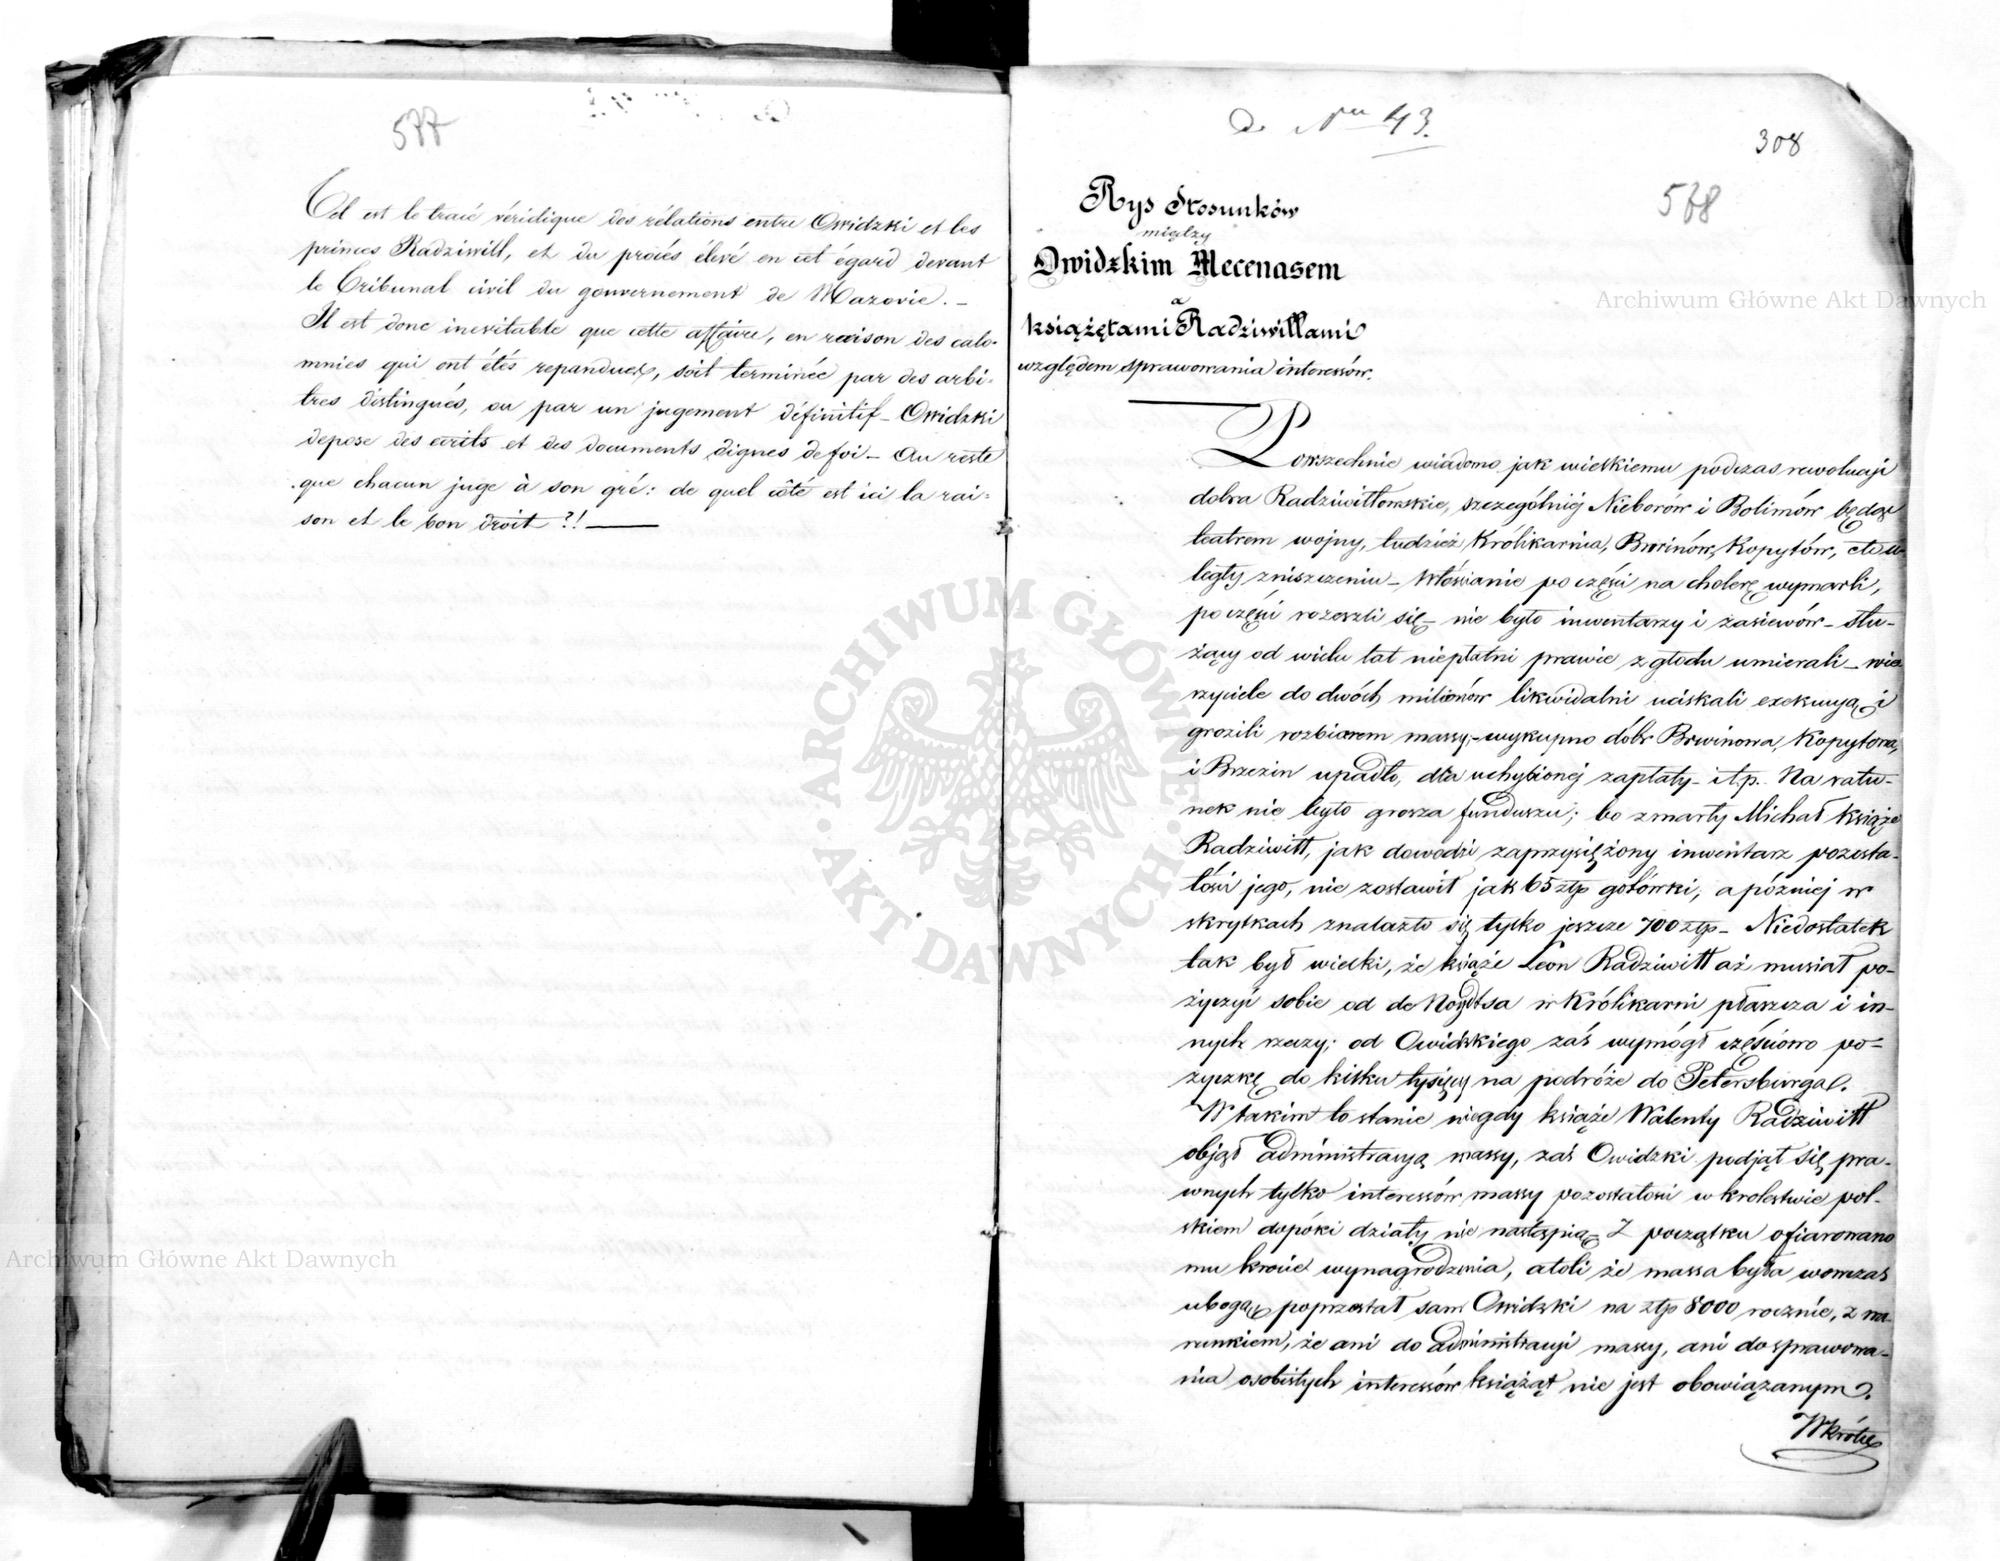 577
Tel est le tracé véridique des rélations entre Owidzki et les
princes Radziwill, et du procés élevé en cet égard devant
le Tribunal civil du gouvernement de Mazovie. –
Il est donc inevitable que cette affaire, en raison des calo-
mnies qui ont étés repandues, soit terminée par des arbi-
tres distingués, ou par un jugement définitif – Owidzki
depose des ecrits et des documents dignes de foi – Au reste
que chacun juge à son gré: de quel côté est ici la rai-
son et le bon droit ?! —
Nru 43.
308
578
Rys Stosunków
między
Owidzkim Mecenasem
a
książętami Radziwiłłami
względem sprawowania interessów.
Powszechnie wiadomo jak wielkiemu podczas rewolucji
dobra Radziwiłłowskie, szczególniej Nieborów i Bolimów będąc
teatrem wojny, tudzież Królikarnia, Brwinów, Kopytów, etc u-
legły zniszczeniu – Włościanie po części na cholerę wymarli,
po części rozeszli się – nie było inwentarzy i zasiewów – słu-
żący od wielu lat niepłatni prawie z głodu umierali – wie-
rzyciele do dwóch milionów likwidalni uciskali exekucyą i
grozili rozbiorem massy; – wykupno dóbr Brwinowa, Kopytowa,
i Brzezin upadło, dla uchybionej zapłaty – i t.p. Na ratu-
nek nie było grosza funduszu; bo zmarły Michał Książe
Radziwiłł, jak dowodzi zaprzysiężony inwentarz pozosta-
łości jego, nie zostawił jak 65 złp gotówki, a później w
skrytkach znalazło się tylko jeszcze 700 złp – Niedostatek
tak był wielki, że książe Leon Radziwiłł aż musiał po-
życzyć sobie od de w Królikarni płaszcza i in-
nych rzeczy; od Owidzkiego zaś wymógł częściowo po-
życzkę do kilku tysięcy na podróże do Petersburga.
W takim to stanie niegdy książe Walenty Radziwiłł
objął administracyą massy, zaś Owidzki podjął się pra-
wnych tylko interessów massy pozostałości w krolestwie pol-
skiem dopóki działy nie nastąpią. Z początku ofiarowano
mu krocie wynagrodzenia, atoli że massa była wowczas
ubogą, poprzestał sam Owidzki na złp 8000 rocznie, z wa-
runkiem, że ani do administracji massy, ani do sprawowa-
nia osobistych interessów książąt nie jest obowiązanym.
Wkrótce
Archiwum Główne Akt Dawnych
Archiwum Główne Akt Dawnych
ARCHIWUM GŁÓWNE
AKT DAWNYCH